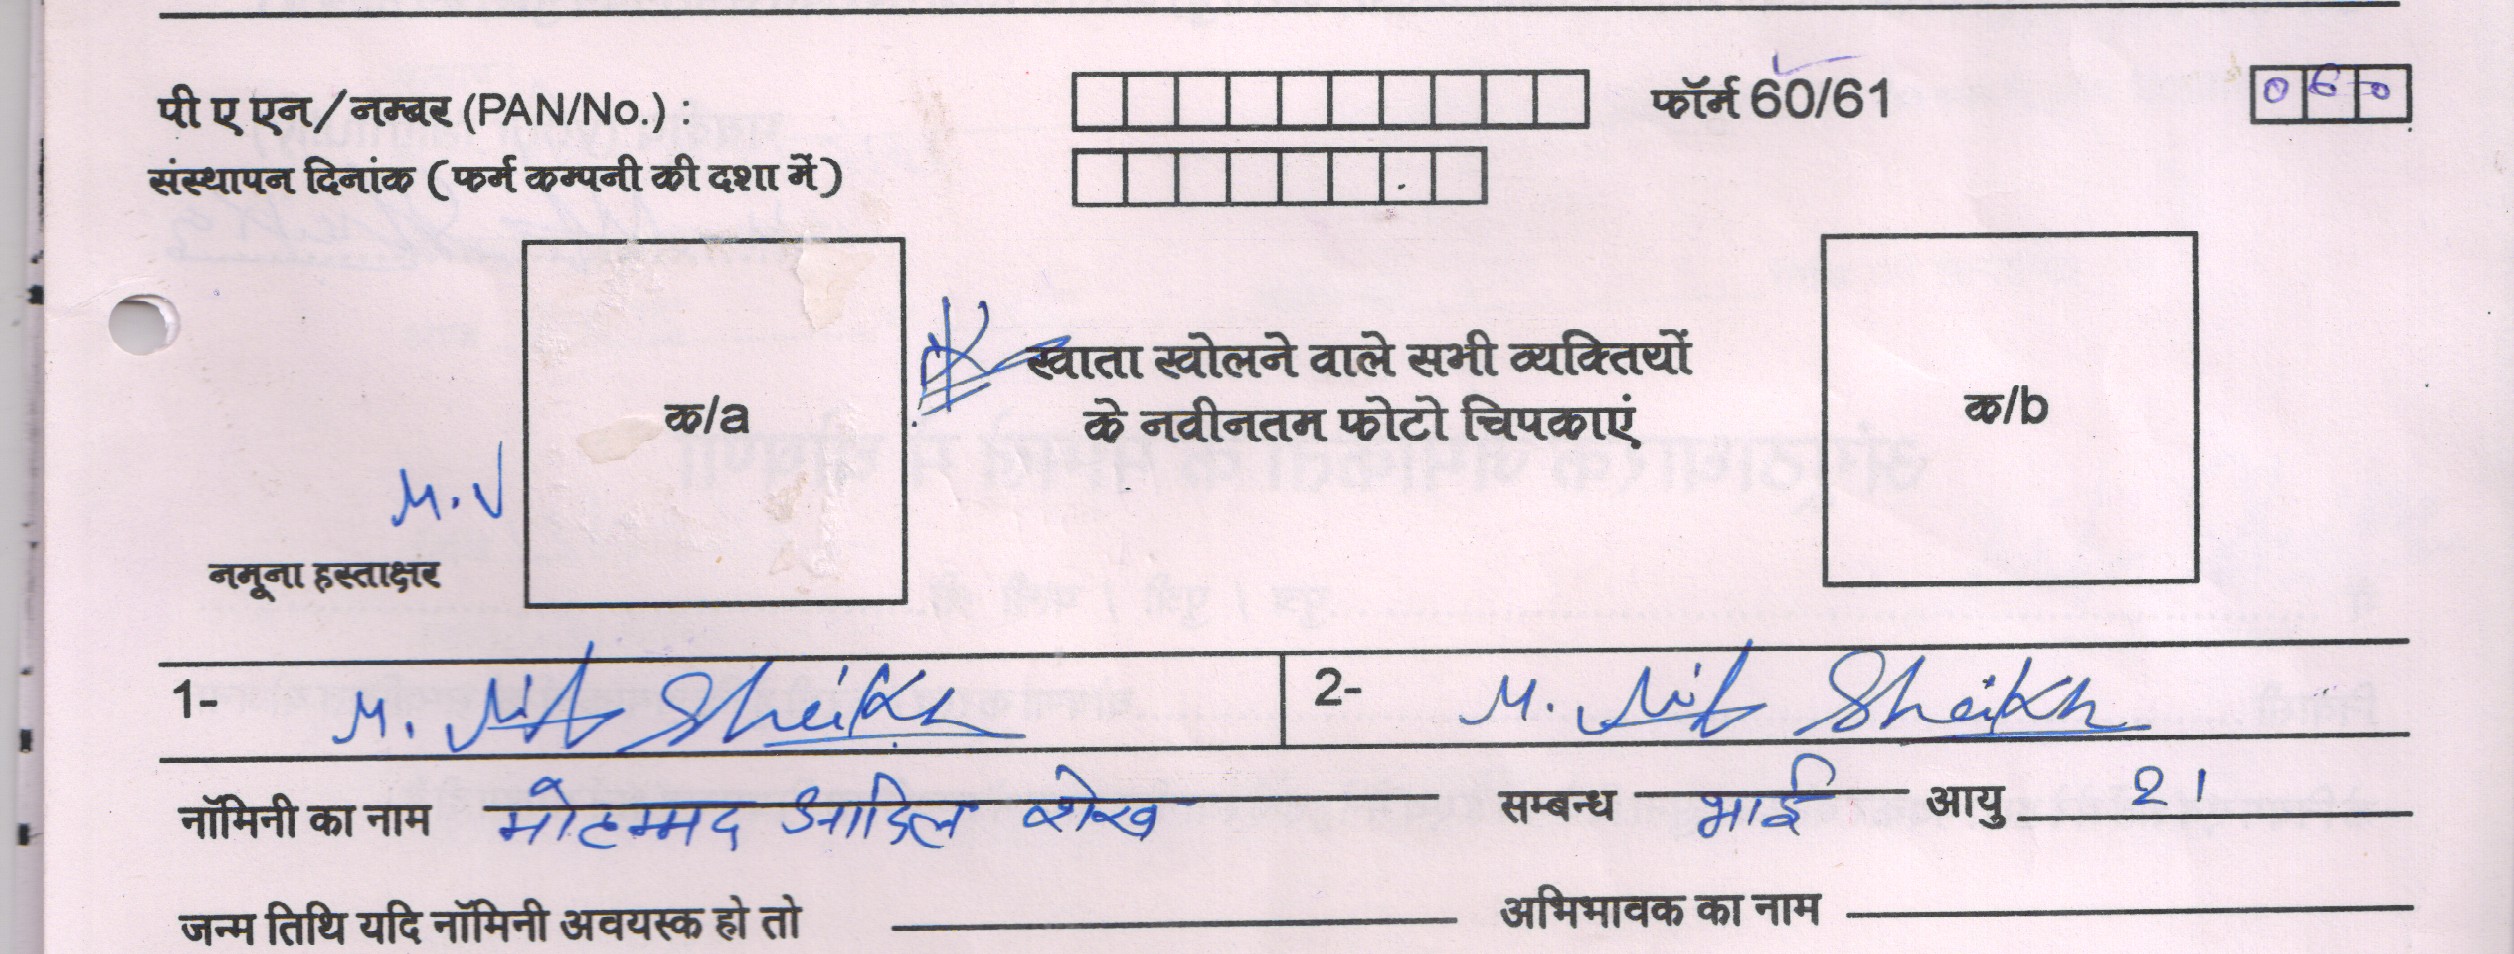 पी ए एन/नम्बर (PAN/No.) : फॉर्म 60/61 0 6 0
संस्थापन दिनांक (फर्म कम्पनी की दशा में)
खाता खोलने वाले सभी व्यक्तियों
क/a क/b
के नवीनतम फोटो चिपकाएं
M.
नमूना हस्ताक्षर
1- M. Sheikh 2- M. Sheikh
नॉमिनी का नाम मोहम्मद आदिल शेख सम्बन्ध भाई आयु 21
जन्म तिथि यदि नॉमिनी अवयस्क हो तो अभिभावक का नाम